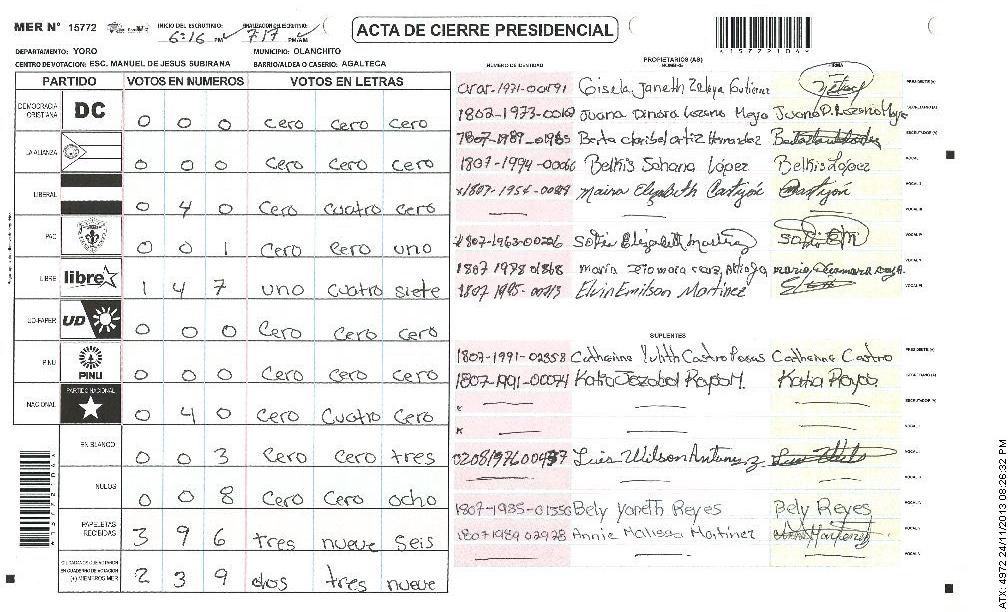 MER N° 15772 INICIO DEL ESCRUTINIO: 6:16 PM FINALIZACION DEL ESCRUTINIO: 7:17 PM/AM
ACTA DE CIERRE PRESIDENCIAL
DEPARTAMENTO: YORO MUNICIPIO: OLANCHITO
CENTRO DE VOTACION: ESC. MANUEL DE JESUS SUBIRANA BARRIO/ALDEA O CASERIO: AGALTECA
PARTIDO VOTOS EN NUMEROS VOTOS EN LETRAS
DEMOCRACIA CRISTIANA DC 0 0 0 Cero Cero Cero
LA ALIANZA 0 0 0 Cero Cero Cero
LIBERAL 0 4 0 Cero Cuatro Cero
PAC 0 0 1 Cero Cero uno
LIBRE libre 1 4 7 uno cuatro siete
UD-FAPER UD 0 0 0 Cero Cero Cero
PINU PINU 0 0 0 Cero Cero Cero
NACIONAL PARTIDO NACIONAL 0 4 0 Cero Cuatro Cero
EN BLANCO 0 0 3 Cero Cero tres
NULOS 0 0 8 Cero Cero ocho
PAPELETAS RECIBIDAS 3 9 6 tres nueve seis
CIUDADANOS QUE VOTARON EN CUADERNO DE VOTACION (+) MIEMBROS MER 2 3 9 dos tres nueve
PROPIETARIOS (AS)
NUMERO DE IDENTIDAD NOMBRE FIRMA
Gisela Janeth Zelaya Gutierrez PRESIDENTE(A)
1802-1973-00 Juana Dinora Lozano Meya Juana D. Lozano Meya SECRETARIO(A)
1807-1989-01985 Berta Claribel Ortiz Hernandez ESCRUTADOR(A)
1807-1994-00066 Belkis Johana López Belkis López VOCAL I
1807-1954-00 Maira Elizabeth Castejón
1807-1963-00226 Sofia Elizabeth Martinez
1807 1978 01868 maria Xiomara
1807 1995- Elvin Emilson Martinez
SUPLENTES
1807-1991-02358 Catherine Castro Catherine Castro PRESIDENTE(A)
1807-1991-00074 Katia Jezabel Reyes M. Katia Reyes SECRETARIO(A)
ESCRUTADOR(A)
Luis Wilson Antunez
1807-1985-01550 Bely Yaneth Reyes Bely Reyes
1807 1989 02928 Annie Melissa Martinez
4157721049
ATX: 4972 24/11/2013 08:26:32 PM